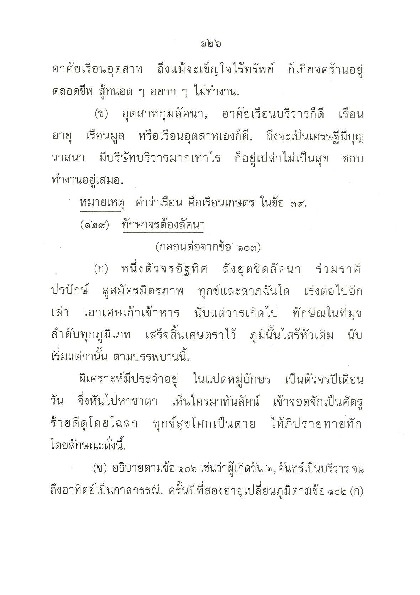 ๑๒๖
อาศัยเรือนอุตสาห ถึงแม้จะเข็ญใจไร้ทรัพย์ ก็เกียจคร้านอยู่
ตลอดชีพ สู้ทนอด ๆ อยาก ๆ ไม่ทำงาน.
(ช) อุตสาหกุมลัคนา, อาศัยเรือนบริวารก็ดี เรือน
อายุ เรือนมูล หรือเรือนอุตสาหเองก็ดี. ถึงจะเป็นเศรษฐีมีบุญ
วาสนา มีบริษัทบริวารมากเท่าไร ก็อยู่เปล่าไม่เป็นสุข ชอบ
ทำงานอยู่เสมอ.
หมายเหตุ คำว่าเรือน คือเรือนเกษตร ในข้อ ๓๙.
(๑๒๙) ทักษาจรต้องลัคนา
(กลอนต่อจากข้อ ๑๐๓)
(ก) หนึ่งตัวจรอัฐทิศ ร่วมราศี
ปรปักษ์ คู่สมัครมิตรภาพ ทุกข์และลาภฉันใด เร่งต่อไปอีก
เล่า เอาเศษเก้าเข้าหาร นับแต่วารเกิดไป ทักษิณในทีมุข
ลำดับทุกภูมิเภท เสร็จสิ้นเศษตราไว้ ภูมิ์นั้นใส่รัหัวเดิม นับ
เริ่มแต่วานั้น ตามบรรพบานนี้.
ผิเคราะห์มีประจำอยู่ ในแปดหมู่อักษร เป็นตัวจรปีเดือน
วัน จึงหันไปหาชาตา เห็นใครมาทันลัคน์ เข้าจอดจักเป็นศัตรู
ร้ายดีดูโดยโฉลก ทุกข์สุขโศกเป็นตาย ให้ภิปรายทายทัก
โดยลักษณะดั่งนี้.
(ข) อธิบายตามข้อ ๑๐๒ เช่นว่าผู้เกิดวัน ๒, จันทร์เป็นบริวาร
ถึงอาทิตย์เป็นกาลกรรณี. ครั้นปีที่สองอายุเปลี่ยนภูมิตามข้อ ๑๐๒ (ก)